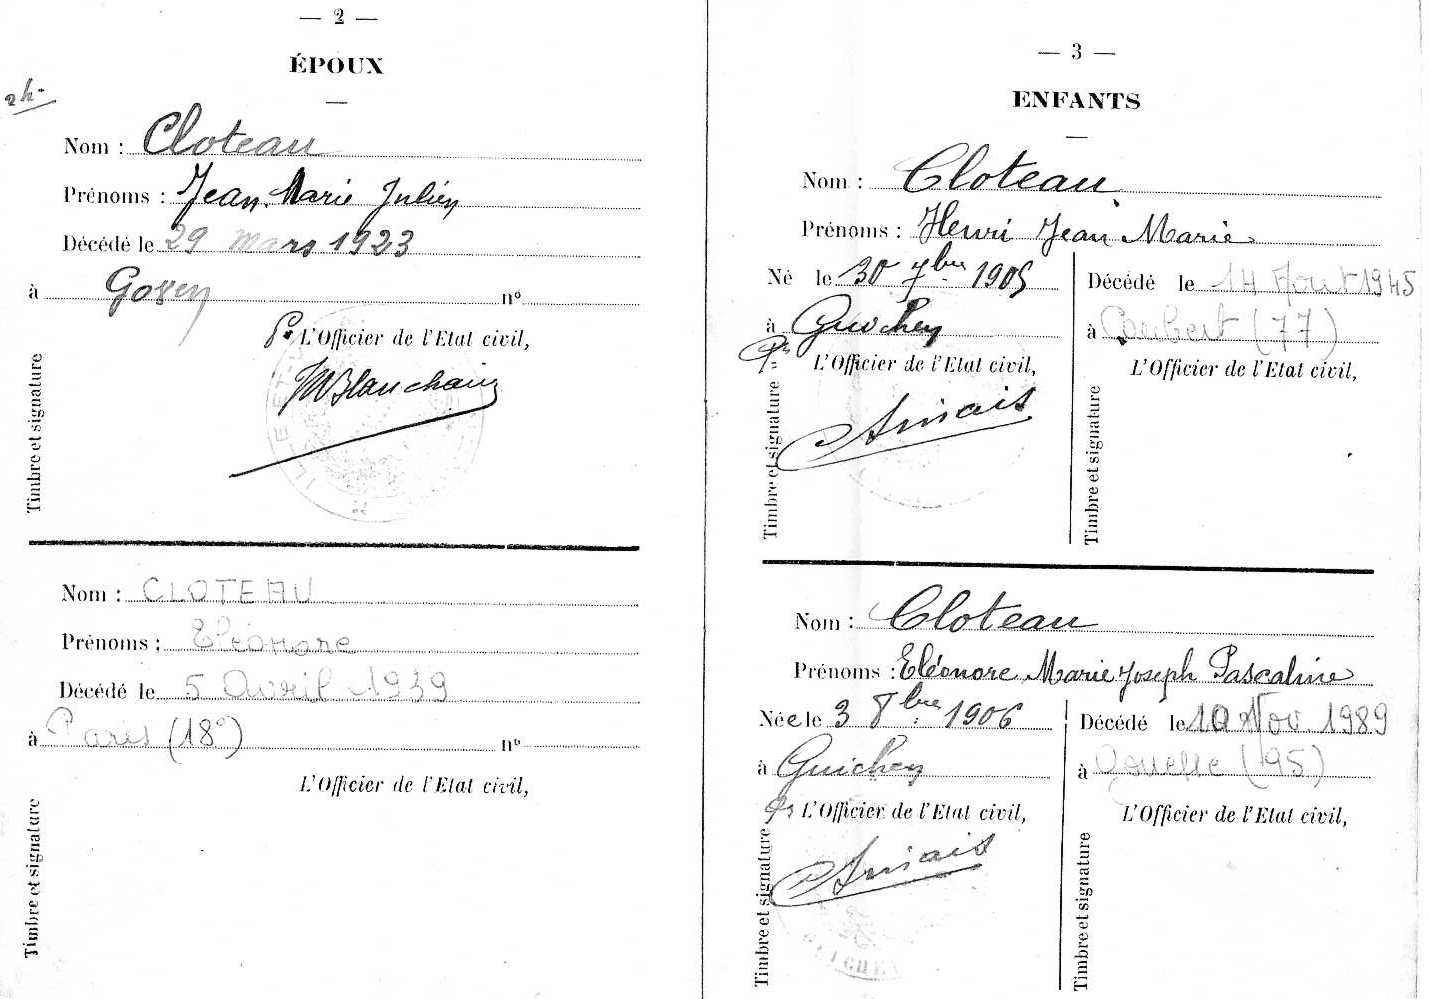 — 2 —
ÉPOUX
2 h-
Nom : Cloteau
Prénoms : Jean Marie Julien
Décédé le 29 mars 1923
à Goven nº
Pr L'Officier de l'Etat civil,
Timbre et signature
Nom : CLOTEAU
Prénoms : Eléonore
Décédé le 5 Avril 1939
à Paris (18º) nº
L'Officier de l'Etat civil,
Timbre et signature
— 3 —
ENFANTS
Nom : Cloteau
Prénoms : Henri Jean Marie
Né le 30 7bre 1905
à Guichen
Pr L'Officier de l'Etat civil,
Timbre et signature
Décédé le 14 Aout 1945
à Coubert (77)
L'Officier de l'Etat civil,
Timbre et signature
Nom : Cloteau
Prénoms : Eléonore Marie Joseph Pascaline
Née le 3 8bre 1906
à Guichen
Pr L'Officier de l'Etat civil,
Timbre et signature
GUICHEN
Décédé le 10 Nov 1989
à (95)
L'Officier de l'Etat civil,
Timbre et signature